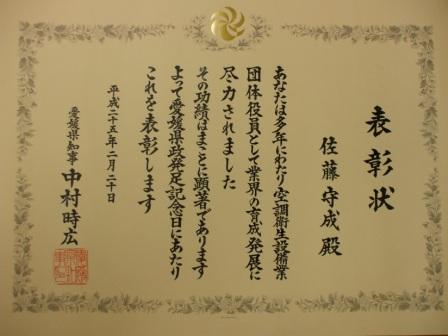 表彰状
佐藤守成殿
あなたは多年にわたり空調衛生設備業
団体役員として業界の育成発展に
尽力されました
その功績はまことに顕著であります
よって愛媛県政発足記念日にあたり
これを表彰します
平成二十五年二月二十日
愛媛県知事 中村時広